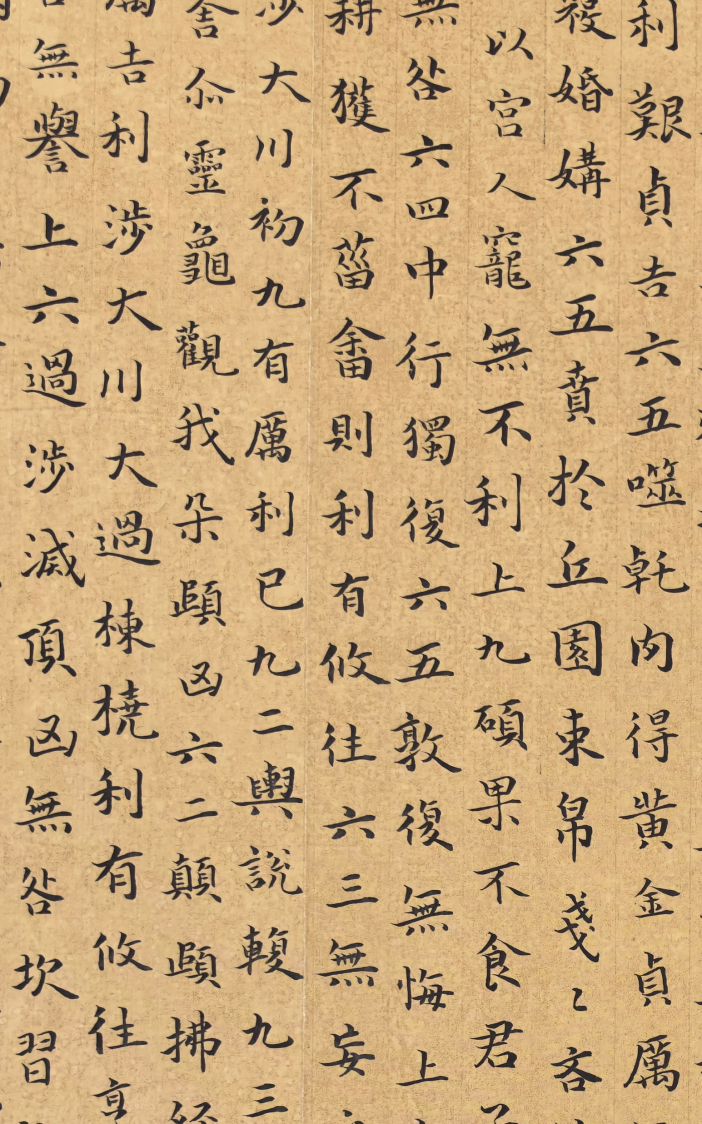 利艱貞吉六五噬乹肉得黃金貞厲
婚媾六五賁於丘園束帛戔〻吝
以宮人寵無不利上九碩果不食君
無咎六四中行獨復六五敦復無悔上
耕獲不菑畬則利有攸往六三無妄
涉大川初九有厲利已九二輿說輹九三
舍尒靈龜觀我朵頤凶六二顛頤拂經
厲吉利涉大川大過棟橈利有攸往亨
無譽上六過涉滅頂凶無咎坎習